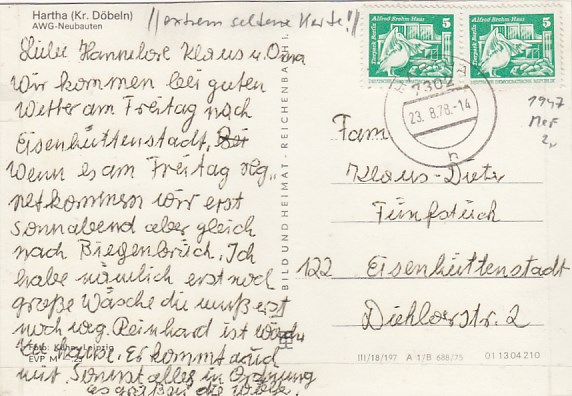 Hartha (Kr. Döbeln)
AWG-Neubauten
//extrem seltene Karte!//
Liebe Hannelore Klaus u. Oma
Wir kommen bei guten
Wetter am Freitag nach
Eisenhüttenstadt,
wenn es am Freitag reg„
net kommen wir erst
Sonnabend aber gleich
nach Biegenbrück. Ich
habe nämlich erst noch
große Wäsche die muß erst
noch weg. Reinhard ist wieder
zu hause. Er kommt auch
mit. Sonst alles in Ordnung
es grüßen die
Foto: Kühn, Leipzig
EVP M
BILD UND HEIMAT · REICHENBACH I.
Alfred Brehm Haus 5
Tierpark Berlin
Alfred Brehm Haus 5
Tierpark Berlin
7302
23.8.78-14
h
1947
Fam
Klaus-Dieter
Fünfstück
122 Eisenhüttenstadt
Diehlostr. 2
III/18/197 A 1/B 688/75 01 13 04 210